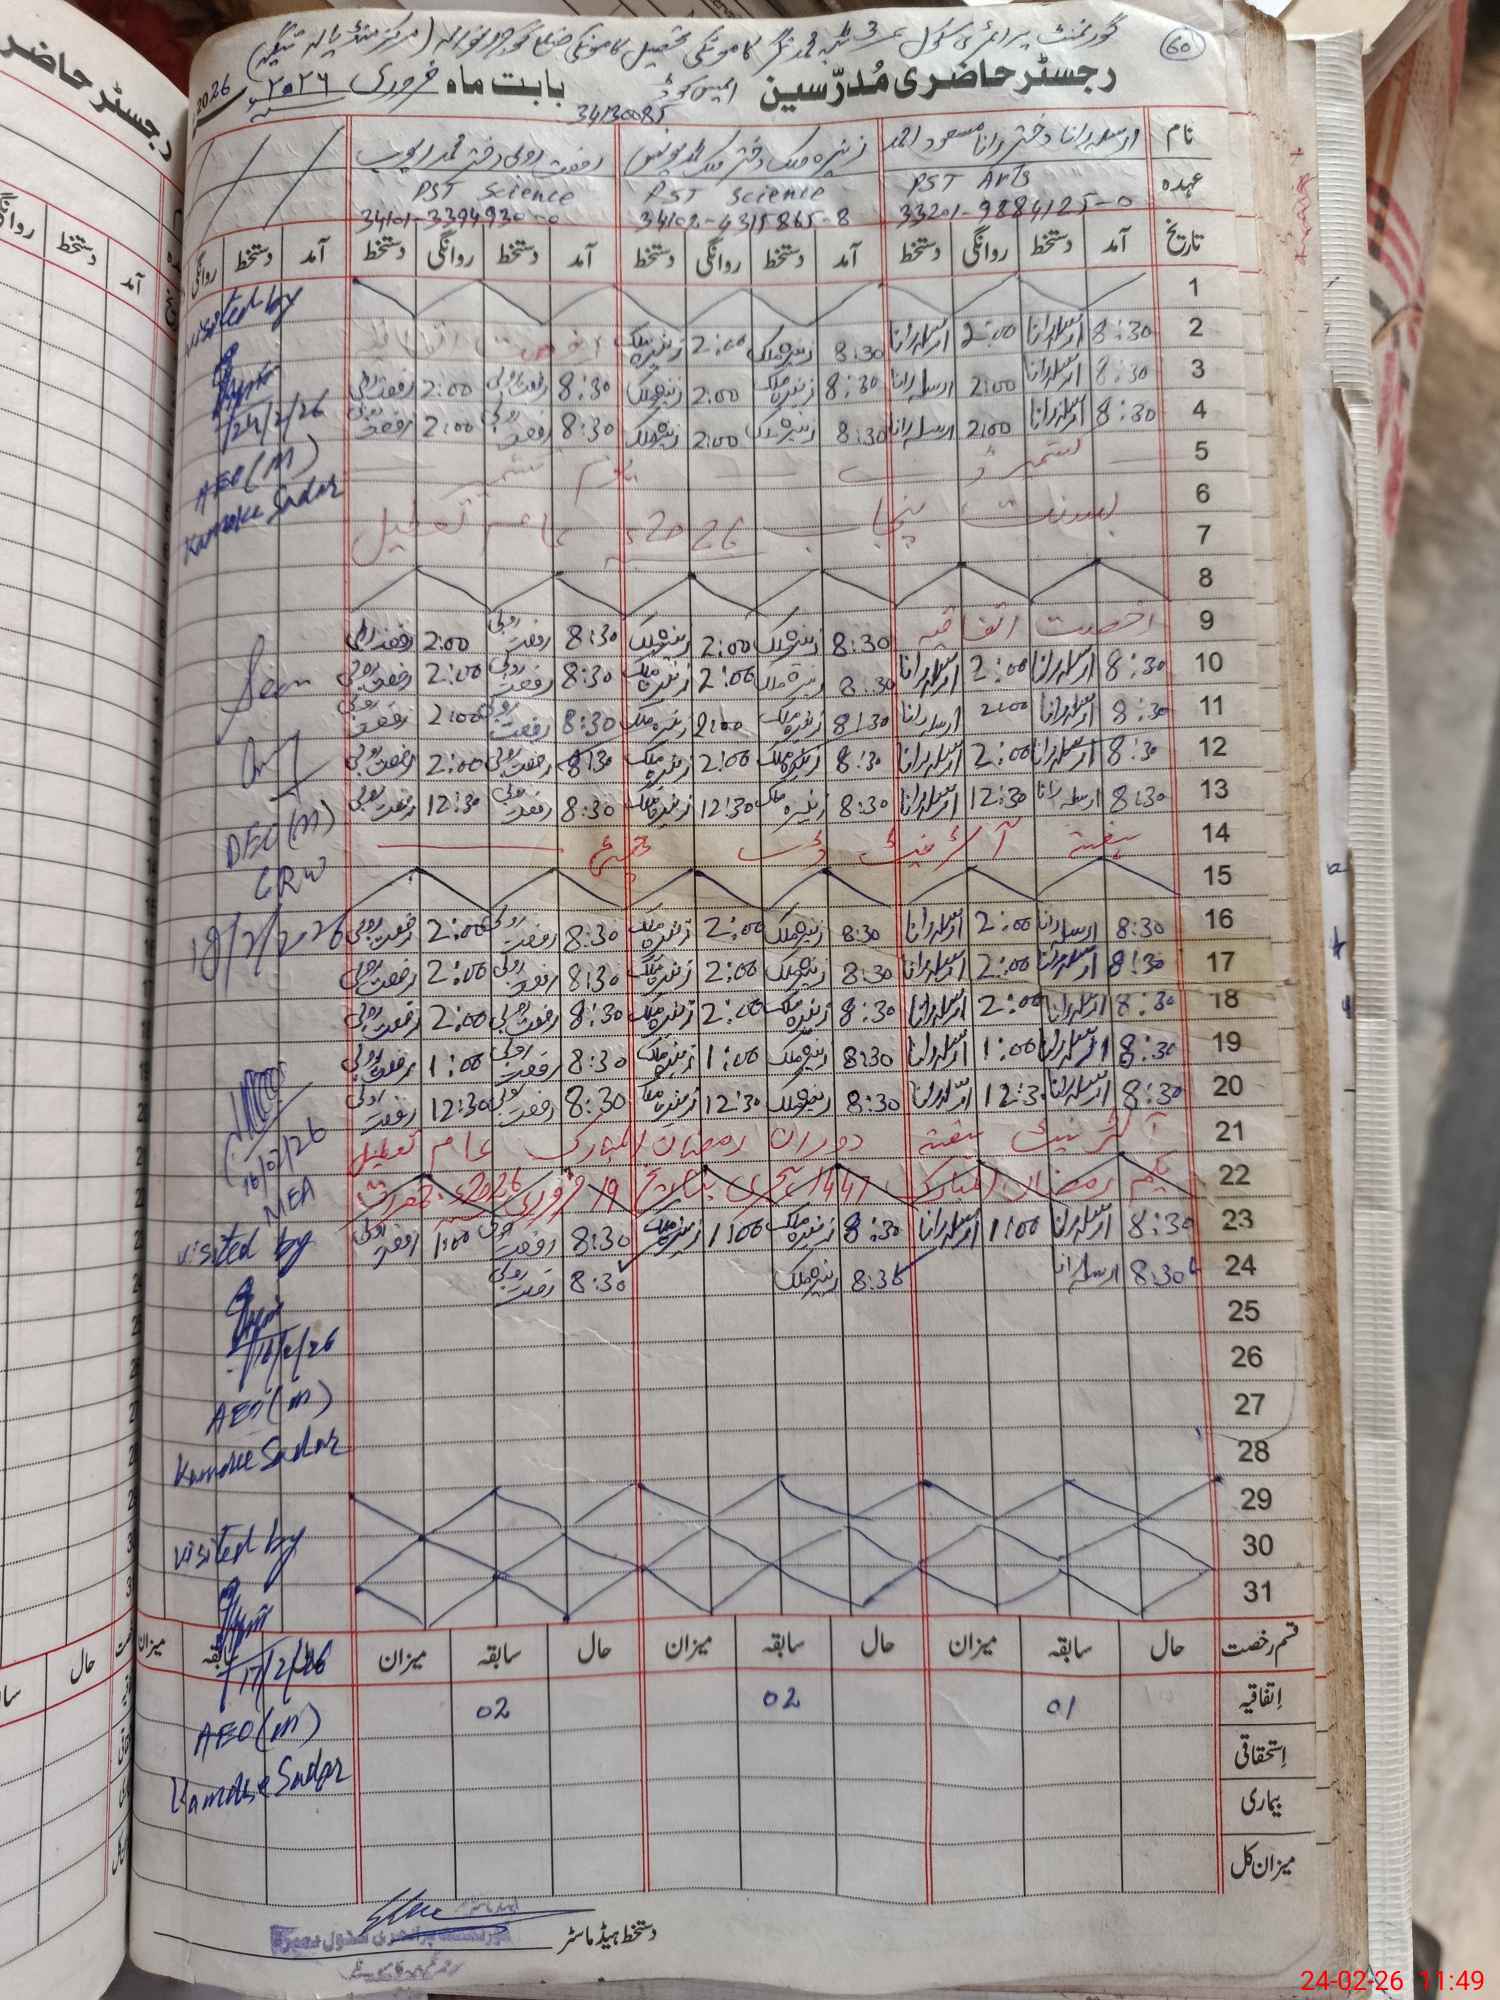 60
گورنمنٹ پرائمری سکول نمبر 3
رجسٹر حاضری مُدرّسین ایمیس کوڈ 34130085 بابت ماہ فروری ۲۰۲۶ 2026
نام ارسلہ رانا دختر رانا مسعود احمد زنیرہ ملک دختر ملک محمد یونس رفعت روبی دختر محمد ایوب
عہدہ PST Arts PST Science PST Science
33201-9884125-0 34102-4315865-8 34101-3394930-0
تاریخ آمد دستخط روانگی دستخط آمد دستخط روانگی دستخط آمد دستخط روانگی دستخط آمد دستخط روانگی
1
2 8:30 ارسلہ رانا 2:00 ارسلہ رانا 8:30 زنیرہ ملک 2:00 زنیرہ ملک رخصت اتفاقیہ
3 8:30 ارسلہ رانا 2:00 ارسلہ رانا 8:30 زنیرہ ملک 2:00 زنیرہ ملک 8:30 رفعت روبی 2:00 رفعت روبی
4 8:30 ارسلہ رانا 2:00 ارسلہ رانا 8:30 زنیرہ ملک 2:00 زنیرہ ملک 8:30 رفعت روبی 2:00 رفعت روبی
5 کشمیر ڈے یوم کشمیر
6 بسنت پنجاب 2026ء عام تعطیل
7
8
9 رخصت اتفاقیہ 8:30 زنیرہ ملک 2:00 زنیرہ ملک 8:30 رفعت روبی 2:00 رفعت روبی
10 8:30 ارسلہ رانا 2:00 ارسلہ رانا 8:30 زنیرہ ملک 2:00 زنیرہ ملک 8:30 رفعت روبی 2:00 رفعت روبی
11 8:30 ارسلہ رانا 2:00 ارسلہ رانا 8:30 زنیرہ ملک 2:00 زنیرہ ملک 8:30 رفعت روبی 2:00 رفعت روبی
12 8:30 ارسلہ رانا 2:00 ارسلہ رانا 8:30 زنیرہ ملک 2:00 زنیرہ ملک 8:30 رفعت روبی 2:00 رفعت روبی
13 8:30 ارسلہ رانا 12:30 ارسلہ رانا 8:30 زنیرہ ملک 12:30 زنیرہ ملک 8:30 رفعت روبی 12:30 رفعت روبی
14 ہفتہ
15
16 8:30 ارسلہ رانا 2:00 ارسلہ رانا 8:30 زنیرہ ملک 2:00 زنیرہ ملک 8:30 رفعت روبی 2:00 رفعت روبی
17 8:30 ارسلہ رانا 2:00 ارسلہ رانا 8:30 زنیرہ ملک 2:00 زنیرہ ملک 8:30 رفعت روبی 2:00 رفعت روبی
18 8:30 ارسلہ رانا 2:00 ارسلہ رانا 8:30 زنیرہ ملک 2:00 زنیرہ ملک 8:30 رفعت روبی 2:00 رفعت روبی
19 8:30 ارسلہ رانا 1:00 ارسلہ رانا 8:30 زنیرہ ملک 1:00 زنیرہ ملک 8:30 رفعت روبی 1:00 رفعت روبی
20 8:30 ارسلہ رانا 12:3 ارسلہ رانا 8:30 زنیرہ ملک 12:30 زنیرہ ملک 8:30 رفعت روبی 12:30 رفعت روبی
21 ہفتہ دوران رمضان المبارک عام تعطیل
22 یکم رمضان المبارک 1447 ہجری بتاریخ 19 فروری 2026ء جمعرات
23 8:30 ارسلہ رانا 1:00 ارسلہ رانا 8:30 زنیرہ ملک 1:00 زنیرہ ملک 8:30 رفعت روبی 1:00 رفعت روبی
24 8:30 ارسلہ رانا 8:30 زنیرہ ملک 8:30 رفعت روبی
25
26
27
28
29
30
31
قسم رخصت حال سابقہ میزان حال سابقہ میزان حال سابقہ میزان
اِتفاقیہ 01 02 02
اِستحقاقی
بیماری
میزان کل
دستخط ہیڈ ماسٹر
visited by
24/2/26
AEO(M)
Kamoke Sadar
DEO(M)
GRW
18/2/2026
16/02/26
MEA
visited by
16/2/26
AEO(M)
Kamoke Sadar
visited by
17/2/26
AEO(M)
Kamoke Sadar
رجسٹر حاضر
آمد دستخط
حال
24-02-26 11:49